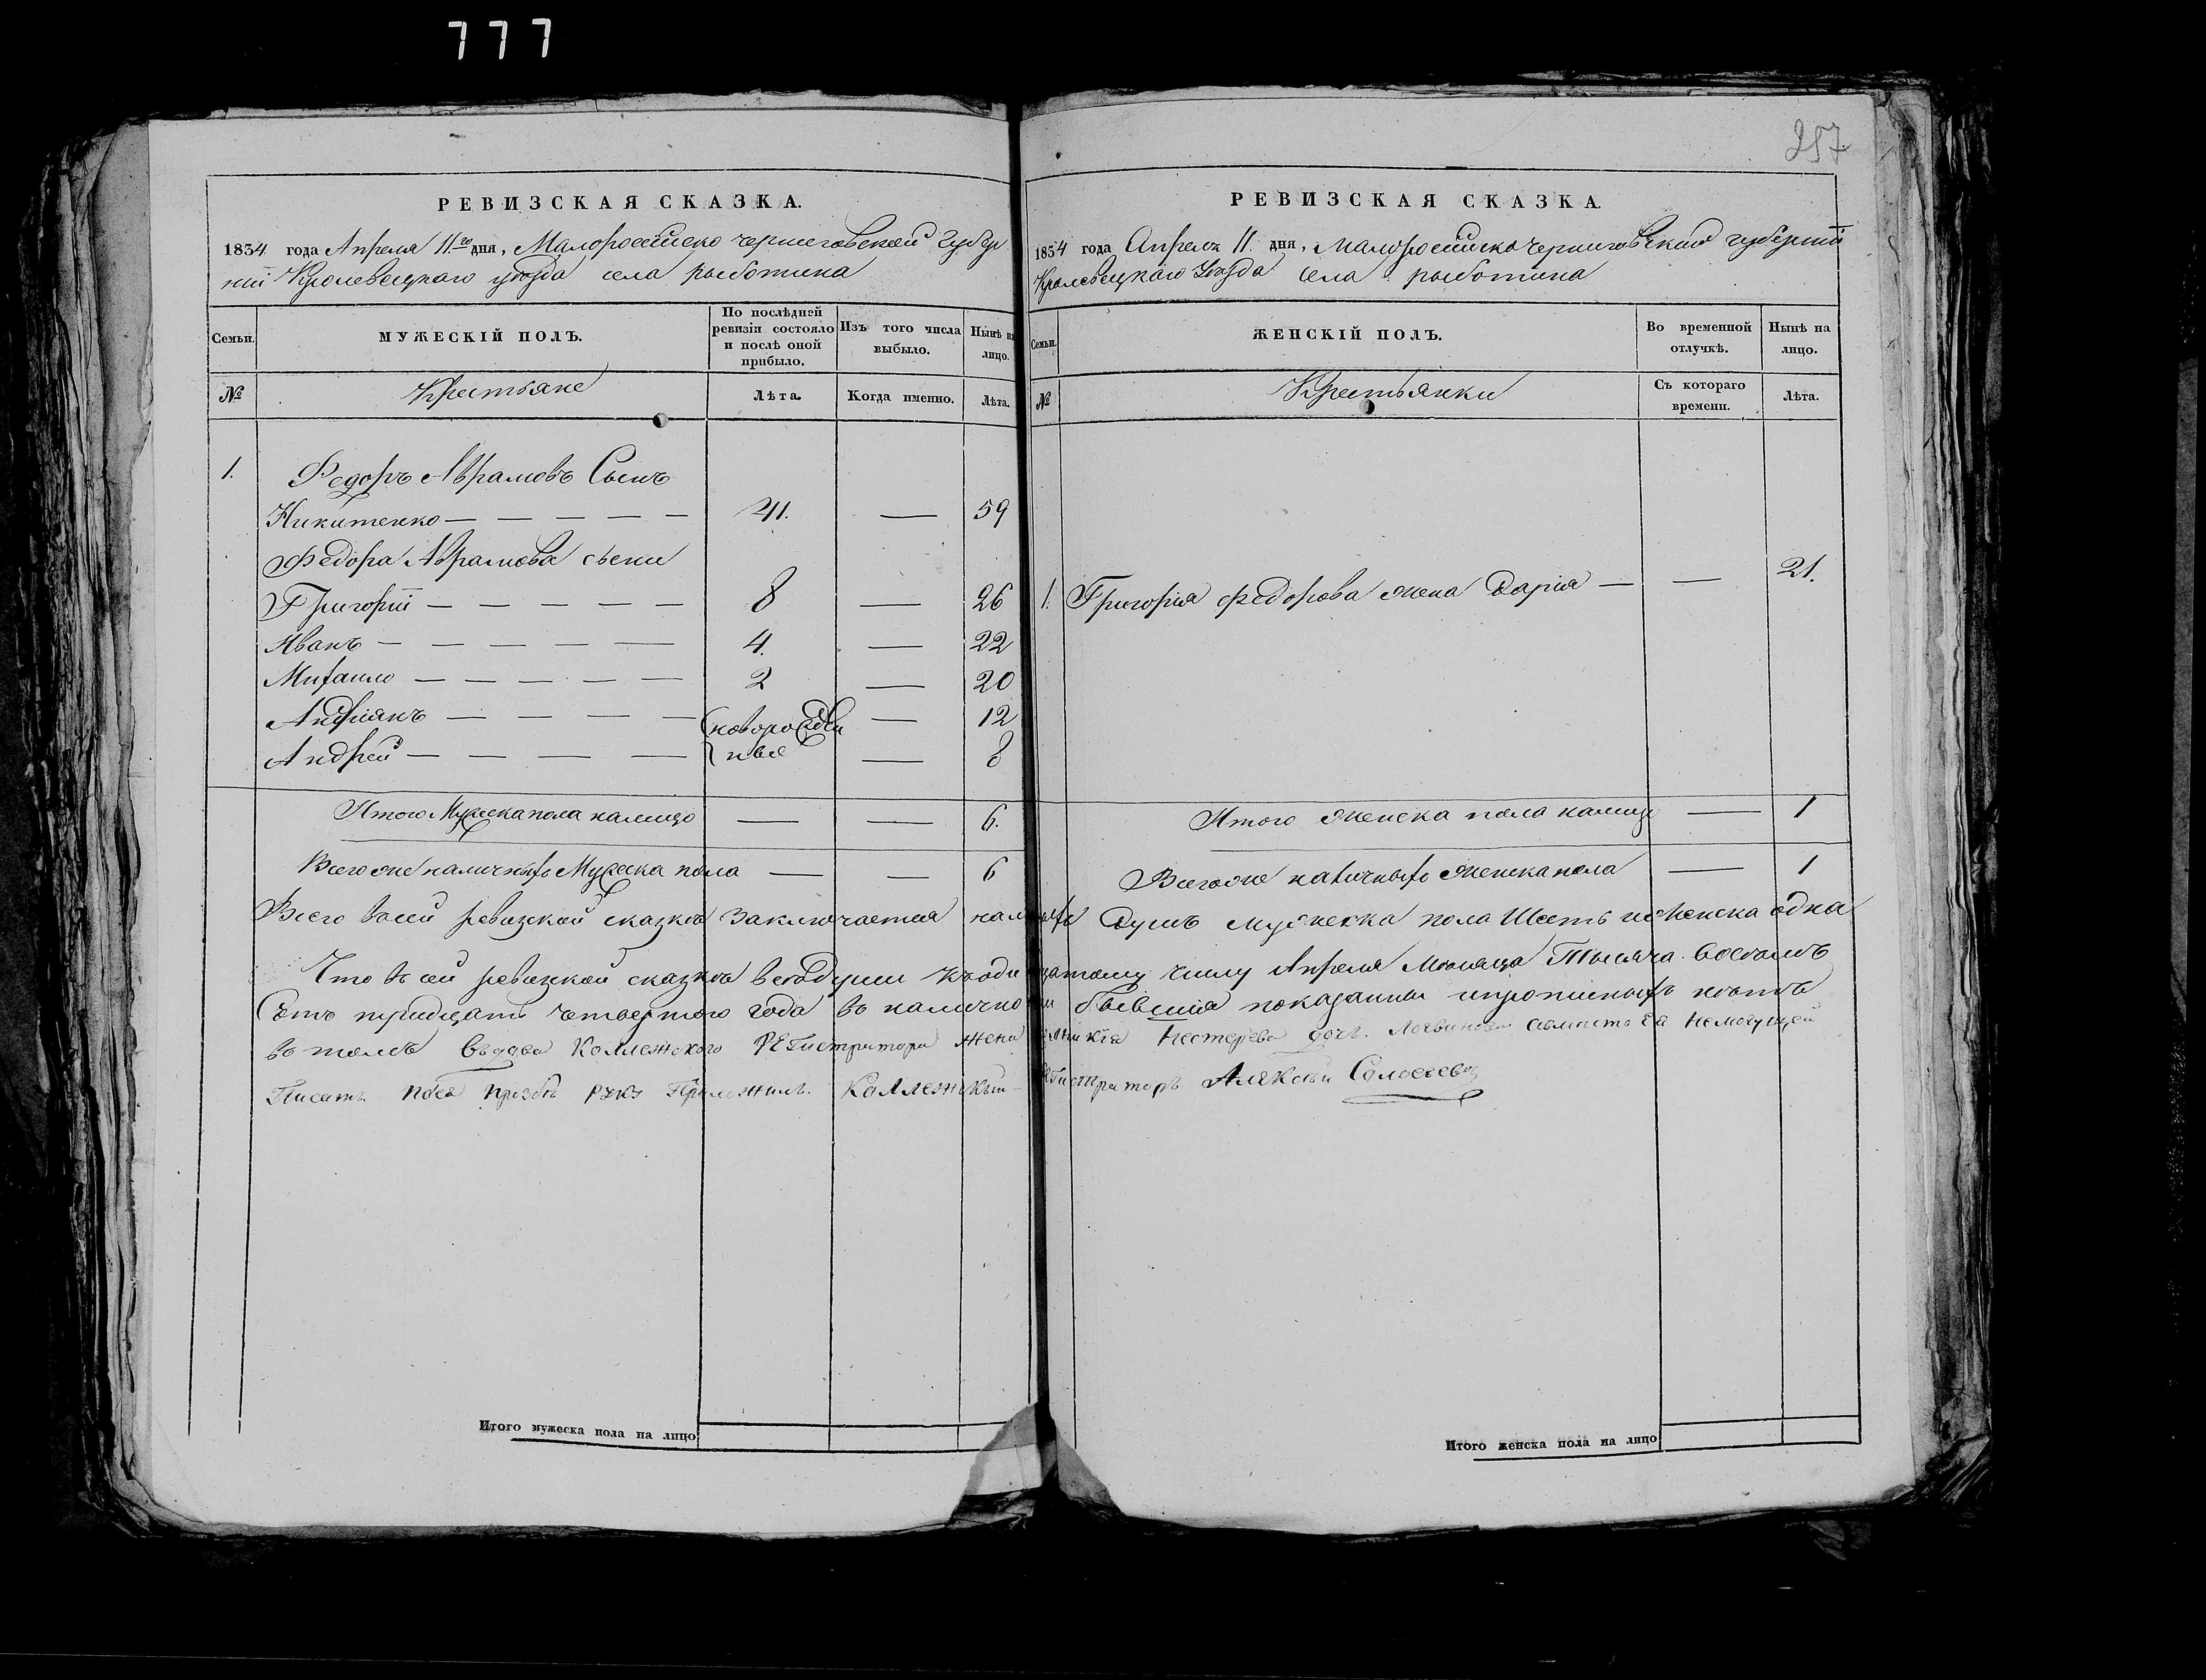 777
257
РЕВИЗСКАЯ СКАЗКА.
1834 года Апреля 11го дня, Малороссійско Черниговской Губер
ніи Кролевецкаго уѣзда села рыботина
Семьи.
МУЖЕСКІЙ ПОЛЪ.
По послѣдней ревизіи состояло и послѣ оной прибыло.
Изъ того числа выбыло.
Нынѣ на лицо.
№
Крестьяне
Лѣта.
Когда именно.
Лѣта.
1. Федоръ Аврамовъ Сынъ
Никитенко — — — — — 41. — 59
Федора Аврамова сыни
Григорій — — — — — 8 — 26
Иванъ — — — — — 4. — 22
Михаило — — — — — 2 — 20
Андріянъ — — — — — новорожден — 12
Андрей — — — — ныя — 8
Итого Мужеска пола налицо — — 6.
Всего же наличныхъ Мужеска пола — — 6
РЕВИЗСКАЯ СКАЗКА.
1834 года Апреля 11. дня, Малоросійско Черниговской губерніи
Кролевецкаго Уѣзда села рыботина
Семьи.
ЖЕНСКІЙ ПОЛЪ.
Во временной отлучкѣ.
Нынѣ на лицо.
№
Крестьянки
Съ котораго времени.
Лѣта.
1. Григорія Федорова жена Дарія — — 21.
Итого женска пола налицо — 1
Всего же наличныхъ женска пола — 1
Всего в сей ревизской сказкѣ заключается наличныхъ Душъ мужеска пола Шесть и женска одна
Что в сей ревизкой сказкѣ всѣ души къ одинцатому числу Апреля Мѣсяца Тысяча восемъ
Сотъ тридцать четвертого года въ налично бывшия показанны и прописныхъ нѣтъ
въ томъ вдова Коллежского РЕГистратора жена Нестерева дочь. вместо Ея Немогущей
Писать по Ея прозбѣ руку Приложилъ. Коллежскъій РЕГистраторъ Алексѣй
Итого мужеска пола на лицо
Итого женска пола на лицо